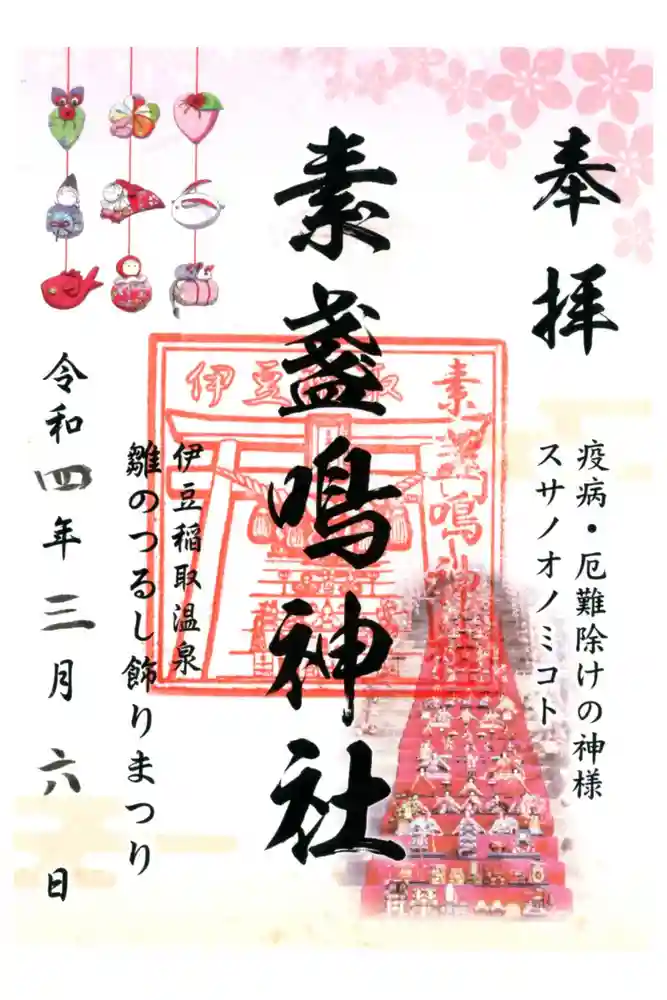 奉拝
疫病・厄難除けの神様
スサノオノミコト
素盞鳴神社
伊豆稲取温泉
雛のつるし飾りまつり
令和四年三月六日
素盞鳴神
伊豆
取